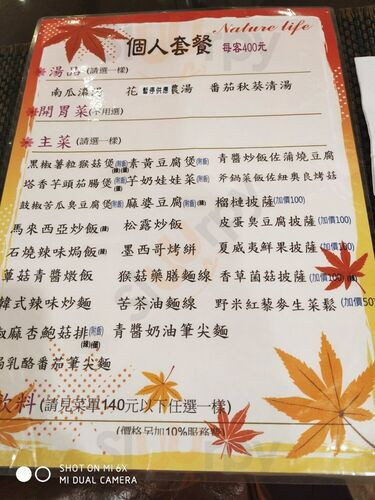 Nature life
個人套餐 每客400元
湯品(請選一樣)
南瓜濃湯 花 暫停供應 農湯 番茄秋葵清湯
開胃菜(不用選)
主菜(請選一樣)
黑椒薯粒猴菇煲(附飯) 素黃豆腐煲(附飯) 青醬炒飯佐蒲燒豆腐
塔香芋頭茄腸煲(附飯) 芋奶娃娃菜(附飯) 斧鍋菜飯佐紐奧良烤菇
鼓椒苦瓜臭豆腐(附飯) 麻婆豆腐(附飯) 榴槤披薩(加價100)
馬來西亞炒飯 松露炒飯 皮蛋臭豆腐披薩(加價100)
石燒辣味焗飯 墨西哥烤餅 夏威夷鮮果披薩(加價100)
蕈菇青醬燉飯 猴菇藥膳麵線 香草菌菇披薩(加價100)
韓式辣味炒麵 苦茶油麵線 野米紅藜麥生菜鬆(加價50
椒麻杏鮑菇排(附飯) 青醬奶油筆尖麵
焗乳酪番茄筆尖麵
飲料(請見菜單140元以下任選一樣)
(價格另加10%服務費)
SHOT ON MI 6X
MI DUAL CAMERA